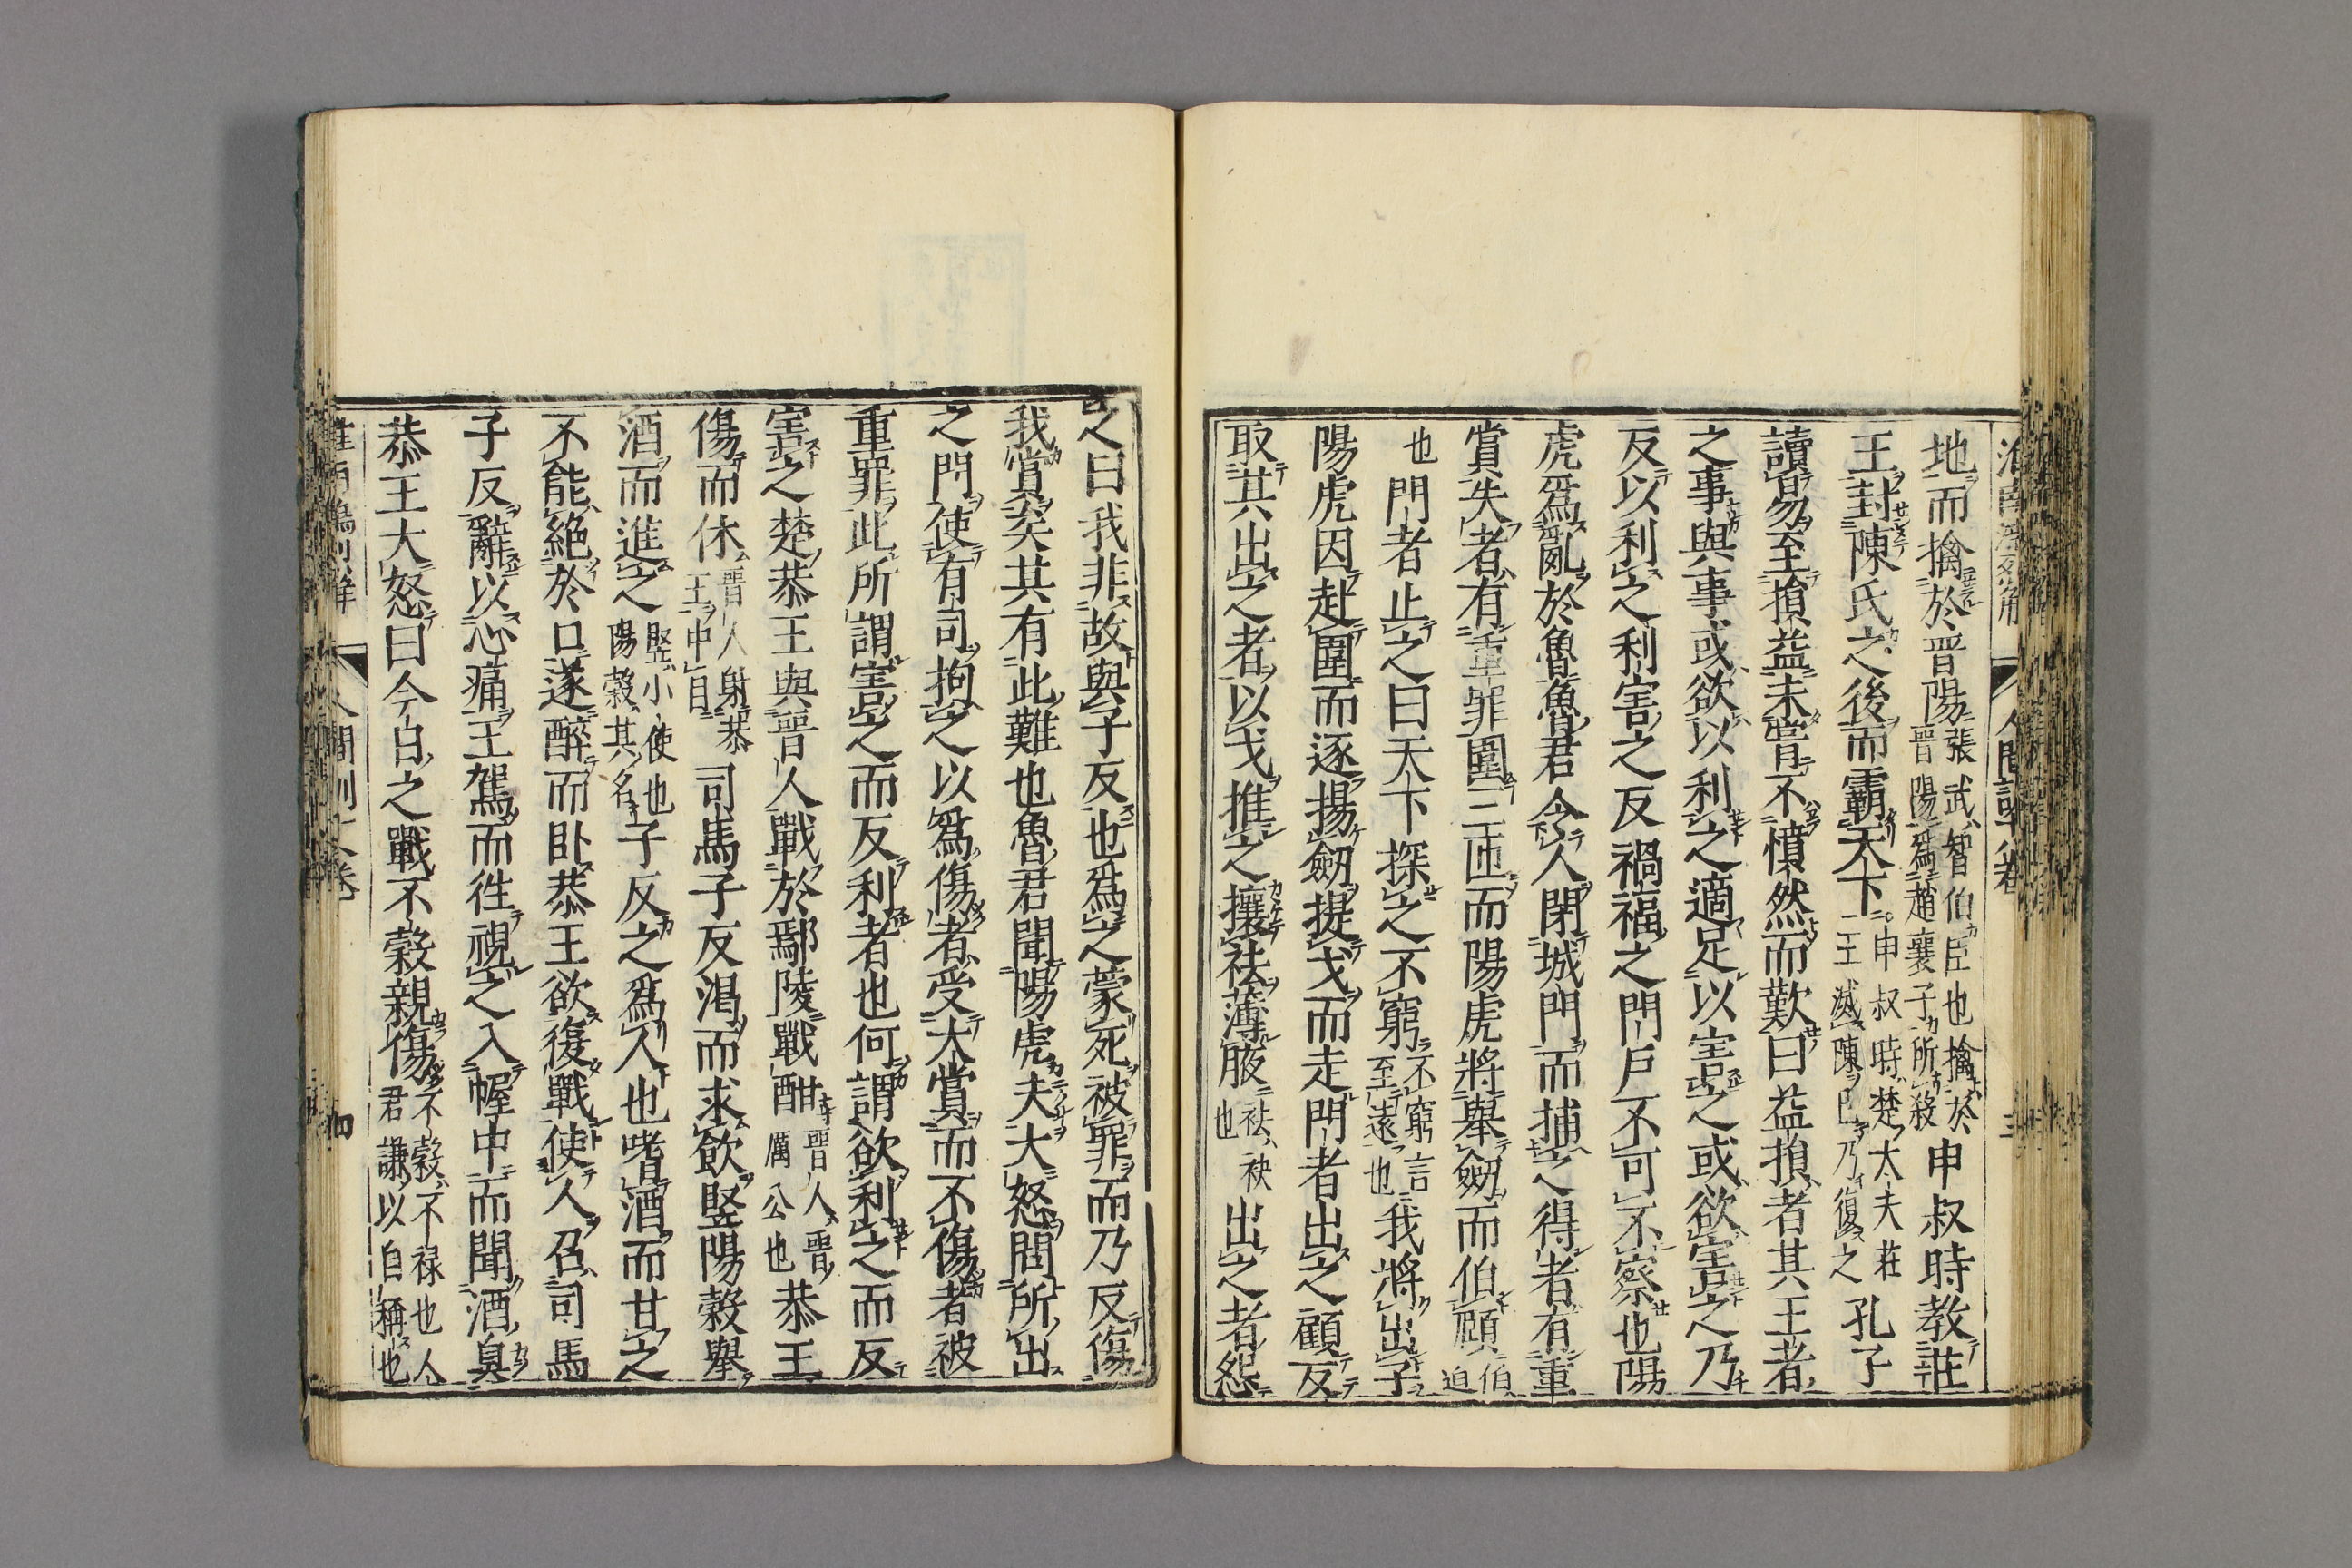 地而擒於晋陽張武智伯臣也擒於晋陽爲趙襄子所殺申叔時教莊
王封陳氏之後而霸天下申叔時楚大夫莊王滅陳已乃復之孔子
讀易至損益未嘗不憤然而歎曰益損者其王者
之事與事或欲以利之適足以害之或欲害之乃
反以利之利害之反禍福之門戸不可不察也陽
虎爲亂於魯魯君令人閉城門而捕之得者有重
賞失者有重罪圍三匝而陽虎將舉劒而伯頤伯迫
也門者止之曰天下探之不窮不窮言至遠也我將出子
陽虎因赴圍而逐揚劒提戈而走門者出之顧反
取其出之者以戈推之攘祛薄腋祛袂也出之者怨
之曰我非故與子反也爲之蒙死被罪而乃反傷
我賞矣其有此難也魯君聞陽虎夫大怒問所出
之門使有司拘之以爲傷者受大賞而不傷者被
重罪此所謂害之而反利者也何謂欲利之而反
害之楚恭王與晋人戰於鄢陵戰酣晋人晋厲公也恭王
傷而休晋人射恭王中目司馬子反渇而求飲竪陽穀舉
酒而進之竪小使也陽穀其名子反之爲人也嗜酒而甘之
不能絶於口遂醉而卧恭王欲復戰使人召司馬
子反辭以心痛王駕而徃視之入幄中而聞酒臭
恭王大怒曰今白之戰不穀親傷不穀不禄也人君謙以自稱也
人間訓 四